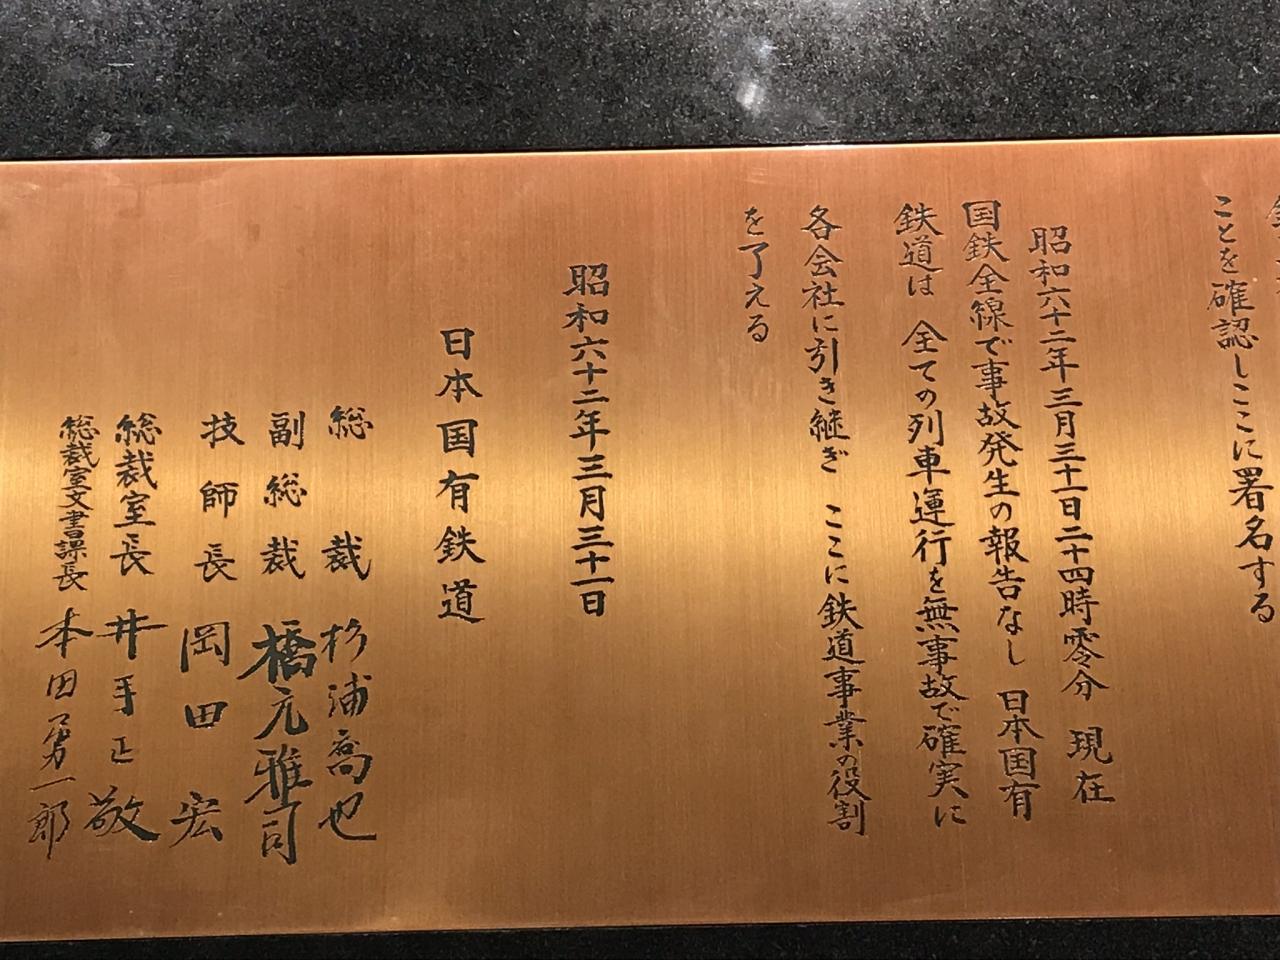 ことを確認しここに署名する
昭和六十二年三月三十一日二十四時零分 現在
国鉄全線で事故発生の報告なし 日本国有
鉄道は 全ての列車運行を無事故で確実に
各会社に引き継ぎ ここに鉄道事業の役割
を了える
昭和六十二年三月三十一日
日本国有鉄道
総裁 杉浦喬也
副総裁 橋元雅司
技師長 岡田 宏
総裁室長 井手正敬
総裁室文書課長 本田勇一郎